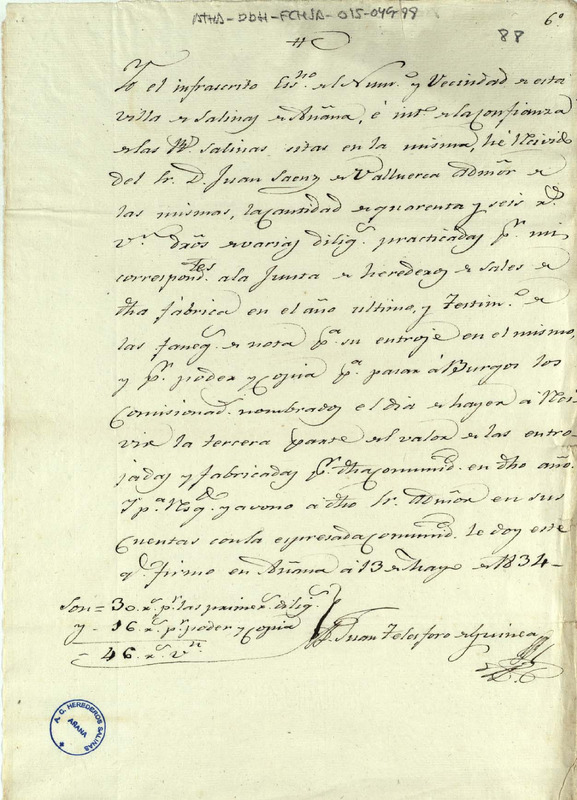 ATHA-DDH-FCHSA-015-049-99
6º
88
Yo el infrascrito Essno. del Numº. y Vecindad de esta
villa de Salinas de Añana, é intº. de la confianza
de las Rs. Salinas sitas en la misma, hé Recivido
del Sr. D. Juan Saenz de Valluerca Admõr de
las mismas, la cantidad de quarenta y seis rs.
vn. dr̃os de varias dilig.s practicadas pr. mi
correspond.tes a la Junta de herederos de sales de
dha fabrica en el año ultimo, y Testimº. de
las faneg.s de nota pª. su entroje en el mismo,
y pr. poder y copia pª. pasar á Burgos los
Comisionad.s nombrados el dia de hayer á Reci-
vir la tercera parte del valor de las entro-
jadas y fabricadas pr. dha Comunid. en dho año.
Y pª. Resgdo. y avono a dho Sr. Admõr en sus
Cuentas con la expresada Comunid. le doy este
q. firmo en Añana á 13 de Mayo de 1834-
Son = 30. rs. pr. las primers. dilig.s
y - 16. rs. pr. poder y copia
- 46. rs. vn.
Juan Telesforo de Guinea
A. C. HEREDEROS SALINAS
AÑANA